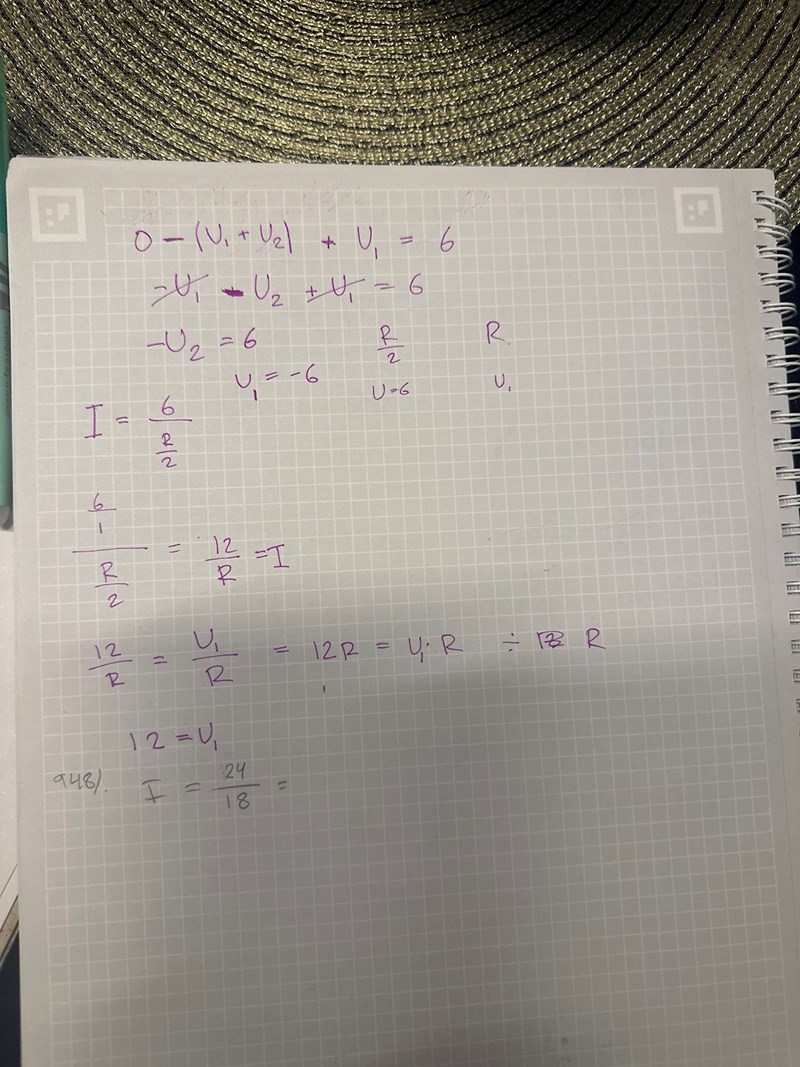 0 - (U₁ + U₂) + U₁ = 6
-U₁ - U₂ + U₁ = 6
-U₂ = 6 R/2 R
U₁ = -6 U=6 U₁
I = 6/(R/2)
(6/1)/(R/2) = 12/R = I
12/R = U₁/R = 12R = U₁·R ÷ R
12 = U₁
948). I = 24/18 =